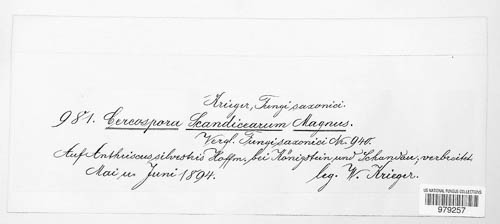 Krieger, Fungi saxonici.
981. Cercospora Scandicearum Magnus.
Vergl. Fungi saxonici Nr. 940.
Auf Anthriscus silvestris Hoffm. bei Königstein und Schandau, verbreitet.
Mai u. Juni 1894. leg. W. Krieger.
US NATIONAL FUNGUS COLLECTIONS
979257